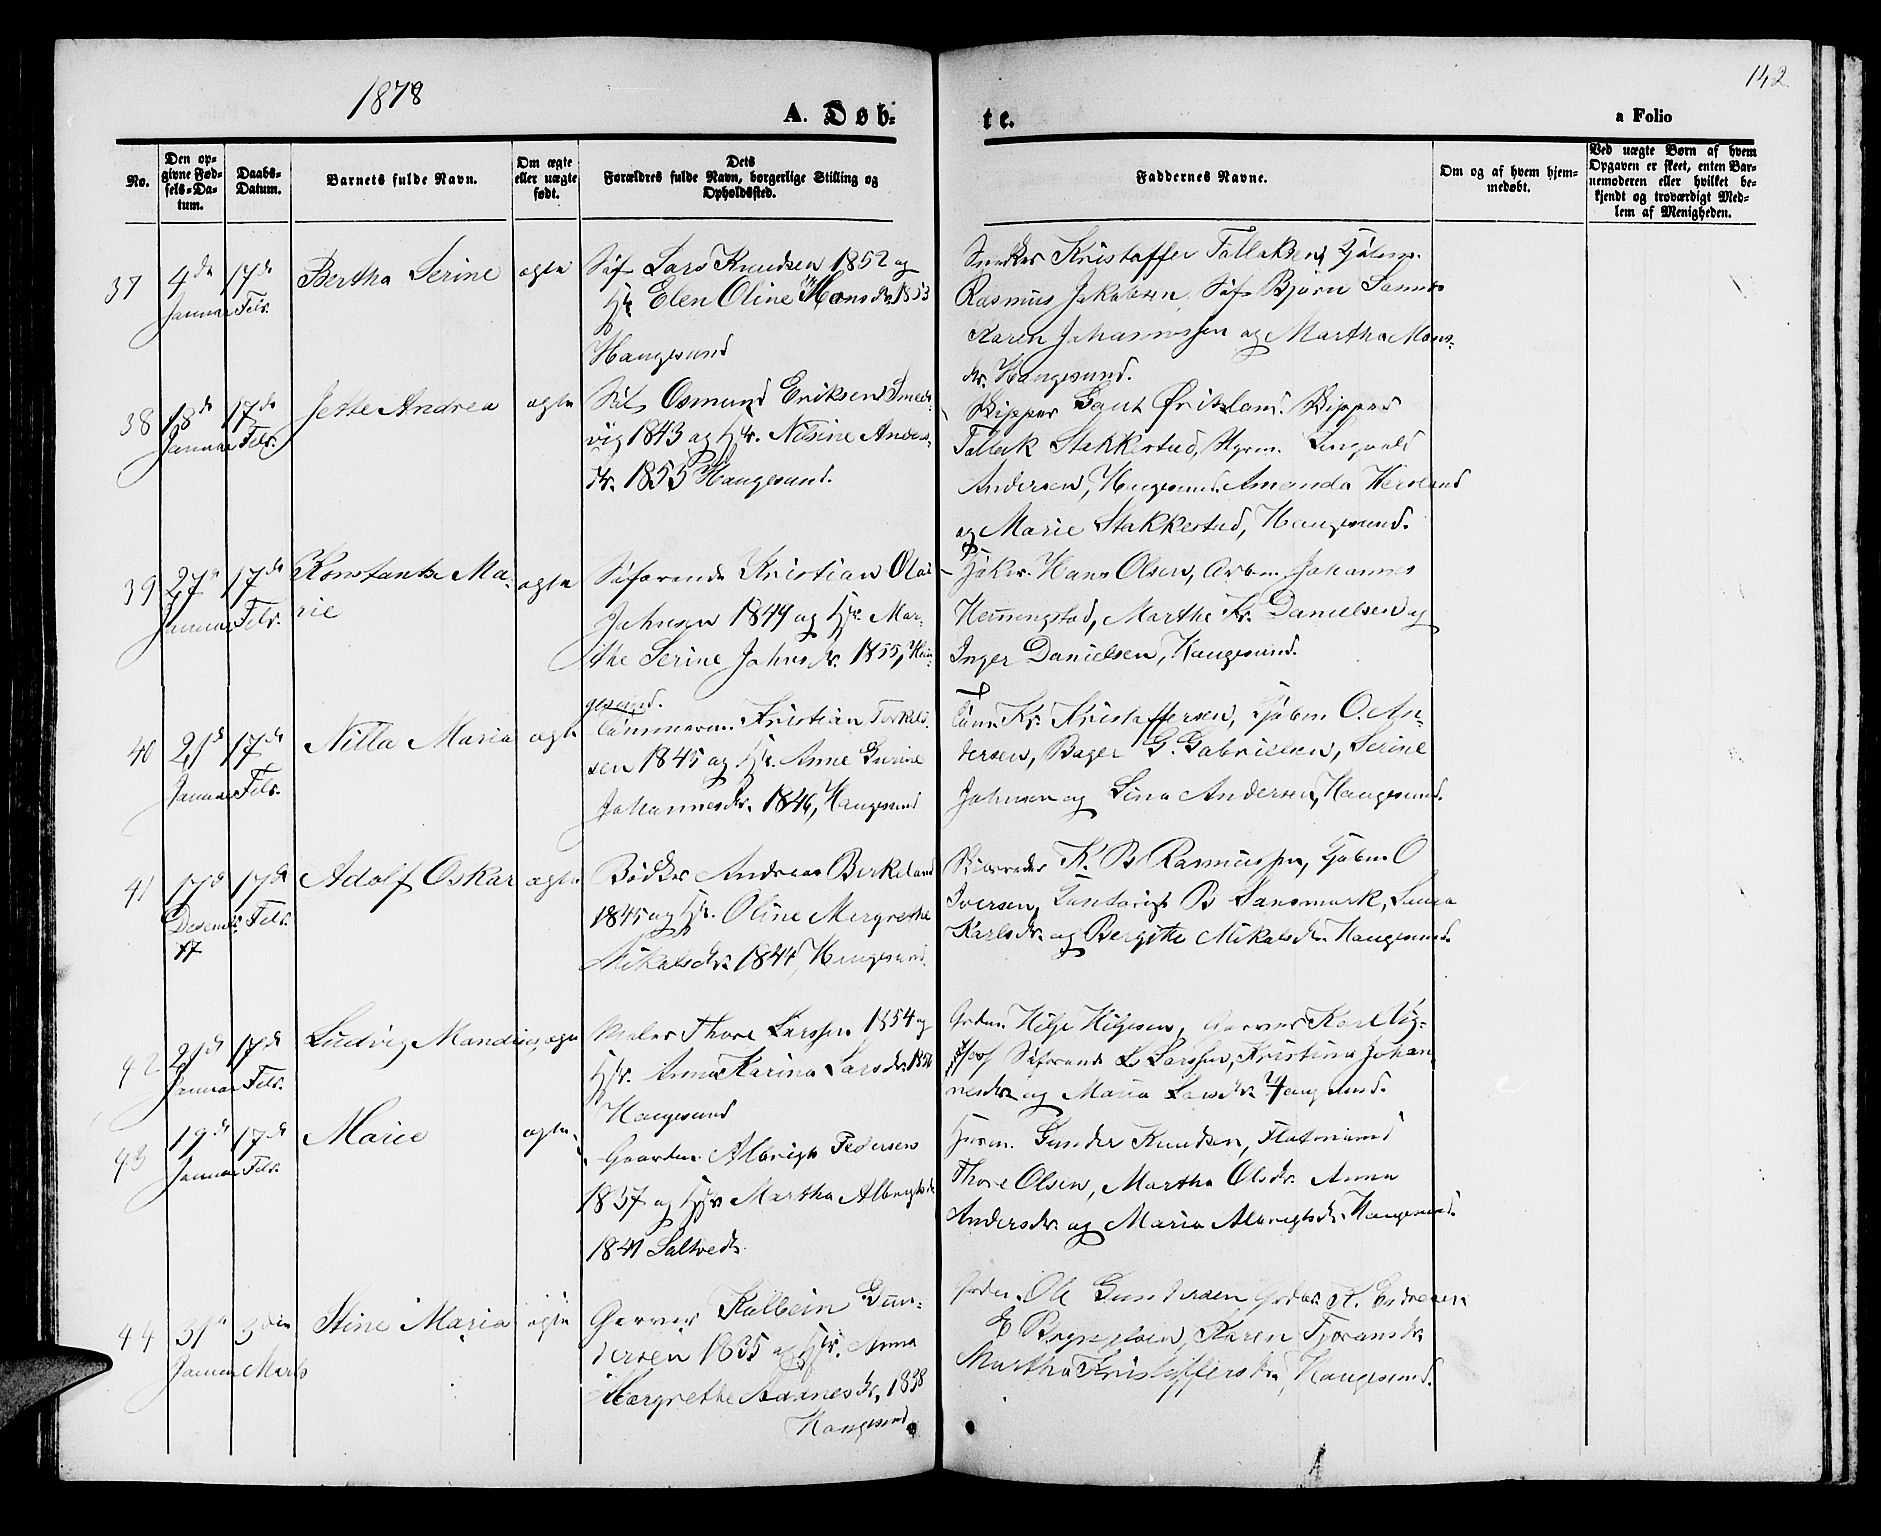 1878
142
A. Døb-
te.
a Folio
No.
Den op-
givne Fød-
sels-Da-
tum.
Daabs-
Datum.
Barnets fulde Navn.
Om ægte
eller uægte
født.
Dets
Forældres fulde Navn, borgerlige Stilling og
Opholdssted.
Faddernes Navne.
Om og af hvem hjem-
medøbt.
Ved uægte Børn af hvem
Opgaven er skeet, enten Bar-
nemoderen eller hvilket be-
kjendt og troværdigt Med-
lem af Menigheden.
37
4de
Januar
17de
Febr.
Bertha Serine
ægte
Søf. Lars Knudsen 1852 og
Hst. Elen Oline Monsdr. 1853
Haugesund
Snedker Kristoffer Tollaksen,
Rasmus Jakobsen, Søf. Bjørn
Karen Johannessen og Martha Mons-
dr. Haugesund.
38
18de
Januar
17de
Febr.
Jette Andrea
ægte
Osmund Eriksen Smeds-
vig 1843 og Hst. Nilsine Anders-
dr. 1855 Haugesund.
Skipper Gaut Skipper
Tollak Stakkestad, Styrm. Ingvald
Andersen, Haugesund. Amanda Hersland
og Marie Stakkestad, Haugesund.
39
27de
Januar
17de
Febr.
Konstantse Ma-
rie
ægte
Søfarende Kristian Olai
Johnsen 1849 og Hst. Mar-
the Serine Johnsdr. 1855, Hau-
gesund.
Hans Olsen, Arbm. Johannes
Hemmingstad, Marthe Kr. Danielsen og
Inger Danielsen, Haugesund.
40
21de
Januar
17de
Febr.
Nilla Maria
ægte
Tømmerm. Kristian Torkels-
sen 1845 og Hst. Anne Gurine
Johannesdr. 1846, Haugesund
Tøm. Kr. Kristoffersen, Kjøbm O. An-
dersen, Bager G. Gabrielsen, Serine
Johnsen og Lina Andersen, Haugesund.
41
17de
Desembr.
77
17de
Febr.
Adolf Oskar
ægte
Bødker Andreas Birkeland
1845 og Hst. Oline Margrethe
Mikalsdr. 1844, Haugesund.
K. B. Rasmussen, Kjøbm O
Iversen, B. Sansmark,
Karlsdr. og Bergitte Mikalsdr. Haugesund.
42
21de
Januar
17de
Febr.
Ludvig Mandius
ægte
Maler Thore Larssen 1854 og
Hst. Anna Karina Larsdr.
Haugesund
Helge Helgesen, Garver Karl Vig-
Søfarende L. Larssen, Kristina Johan-
nesdr. og Maria Larsdr. Haugesund.
43
19de
Januar
17de
Febr.
Marie
ægte
Gaardm. Albrigt Pedersen
1837 og Hst. Martha Albrigtsdr.
1841 Saltvedt.
Husm. Gunder Knudsen,
Thore Olsen, Martha Olsdr. Anna
Andersdr. og Maria Albrigtsdr. Haugesund.
44
31te
Januar
3die
Marts
Stine Maria
ægte
Garver Kolbein Gun-
dersen 1835 og Hst. Anna
Margrethe Hannesdr. 1838
Haugesund.
Ole Gundersen
E Karen
Martha Kristoffersdr., Haugesund.